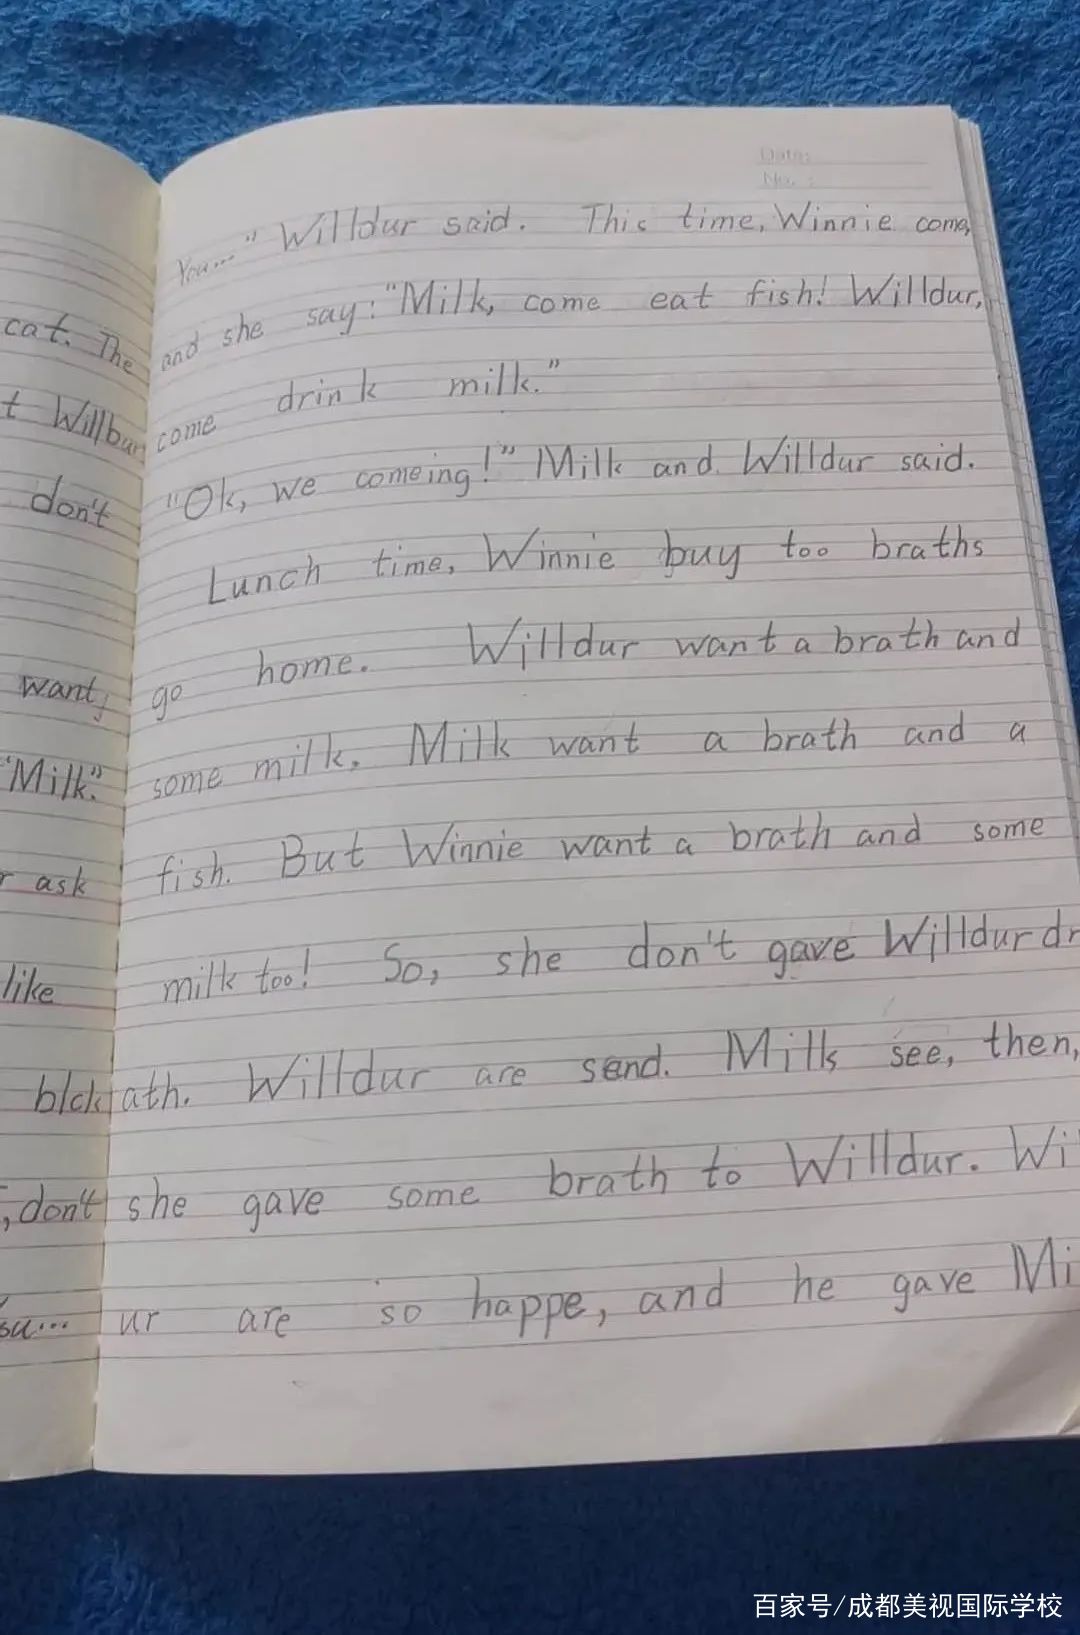 Date:
No. :
You..." Willdur said. This time, Winnie come,
and she say: "Milk, come eat fish! Willdur,
come drink milk."
"Ok, we comeing!" Milk and Willdur said.
Lunch time, Winnie buy too braths
go home. Willdur want a brath and
some milk. Milk want a brath and a
fish. But Winnie want a brath and some
milk too! So, she don't gave Willdur dr
ath. Willdur are send. Milk see, then,
she gave some brath to Willdur. Wi
ur are so happe, and he gave Mi
cat. The
t Willbur
don't
want,
"Milk."
r ask
like
blck
, don't
ou...
百家号/成都美视国际学校